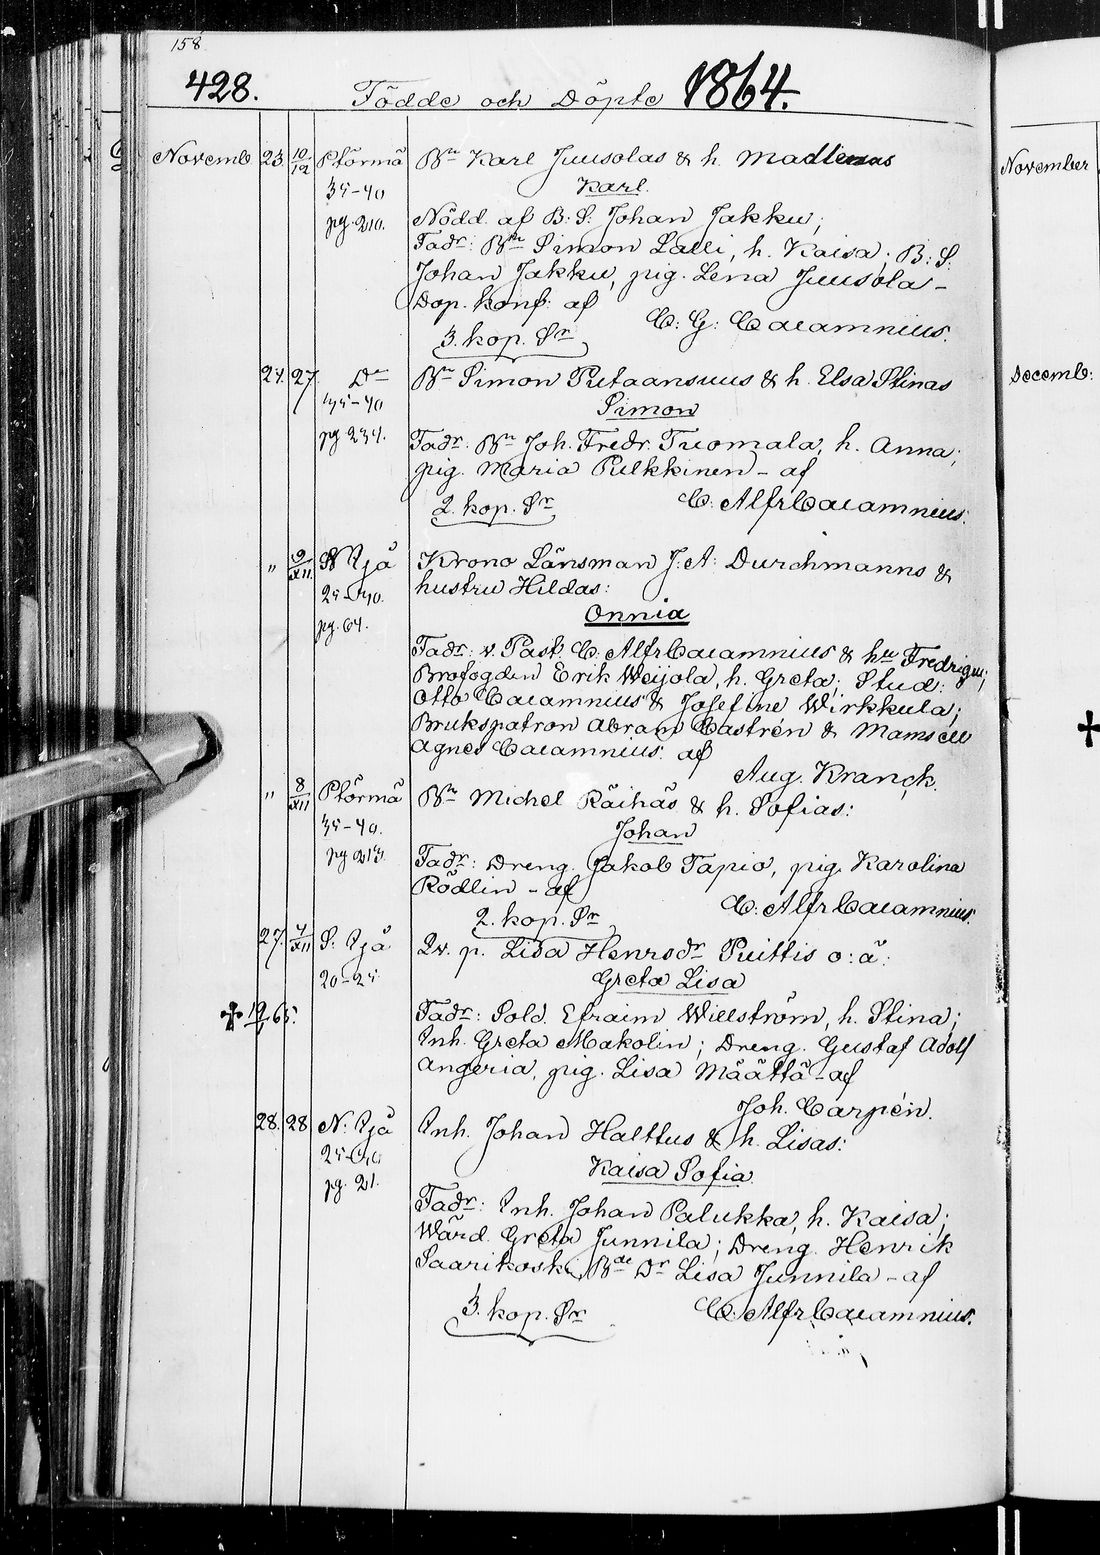 158
428.
Födde och Döpte 1864.
Novemb. 23. 10/12 Ptörmä Bn Karl Juusolas & h. Madlenas
35-40 Karl.
pg. 210. Nödd. af B: S: Johan Jakku;
Fadr: Bn Simon Lalli, h. Kaisa; B: S:
Johan Jakku, pig. Lena Juusola -
Dop. konf: af
C: G: Calamnius.
3. kop. Sr
24. 27. Do Bn Simon Putaansuus & h. Elsa Stinas
35-40 Simon
pg 234. Fadr. Bn Joh. Fredr. Tuomala, h. Anna;
pig. Maria Pulkkinen - af
2. kop. Sr C. Alfr Calamnius.
„ 9/XII. Krono Länsman J. A: Durchmanns &
hustru Hildas:
pg. 64. Onnia
Fadr: v. Past. C. Alfr Calamnius & hu Fredrique;
Brofogden Erik Weijola, h. Greta; Stud:
Otto Calamnius & Josefine Wirkkula;
Brukspatron Abram Castrén & Mamsell
Agnes Calamnius. af
Aug. Kranck.
„ 8/XII Ptörmä Bn Michel Räihäs & h. Sofias:
35-40. Johan
pg 213. Fadr: Dreng. Jakob Tapio, pig. Karolina
Rödlin - af
2. kop. Sr C. Alfr Calamnius.
27. 4/XII S. Yjä Qv. p. Lisa Henrsdr Puittis o: ä:
20-25 Greta Lisa
✝ 19/1 65. Fadr: Sold. Efraim Willström, h. Stina;
Inh. Greta Makolin; Dreng. Gustaf Adolf
Angeria, pig. Lisa Määttä - af
Joh. Carpén.
28. 28 N. Yjä Inh. Johan Halttus & h. Lisas:
Kaisa Sofia
pg. 21.
Fadr: Inh. Johan Palukka, h. Kaisa;
Wärd. Greta Junnila; Dreng. Henrik
Saarikoski, Bde Dr Lisa Junnila - af
3. kop. Sr C. Alfr Calamnius.
November
Decemb:
✝